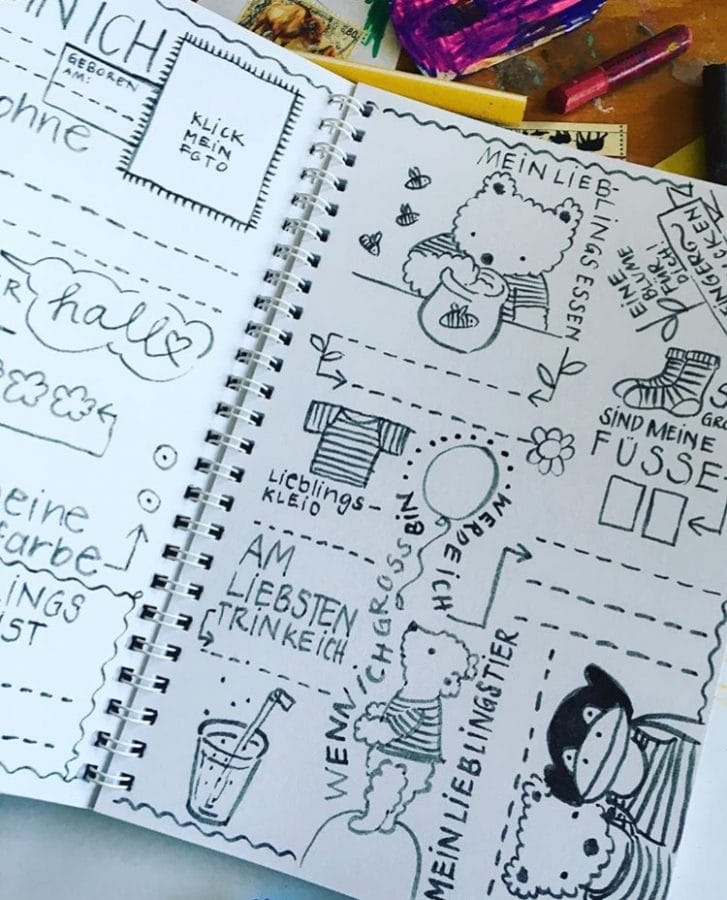 IN ICH
GEBOREN
AM:
KLICK
MEIN
FOTO
ohne
hallo
eine
farbe
LINGS
IST
MEIN LIEB-
LINGSESSEN
EINE
BLUME
FÜR
DICH!
LIEBLINGS-
KLEID
SIND MEINE
FÜSSE
AM
LIEBSTEN
TRINKE ICH
WENN ICH GROSS BIN
WERDE ICH
MEIN LIEBLINGSTIER